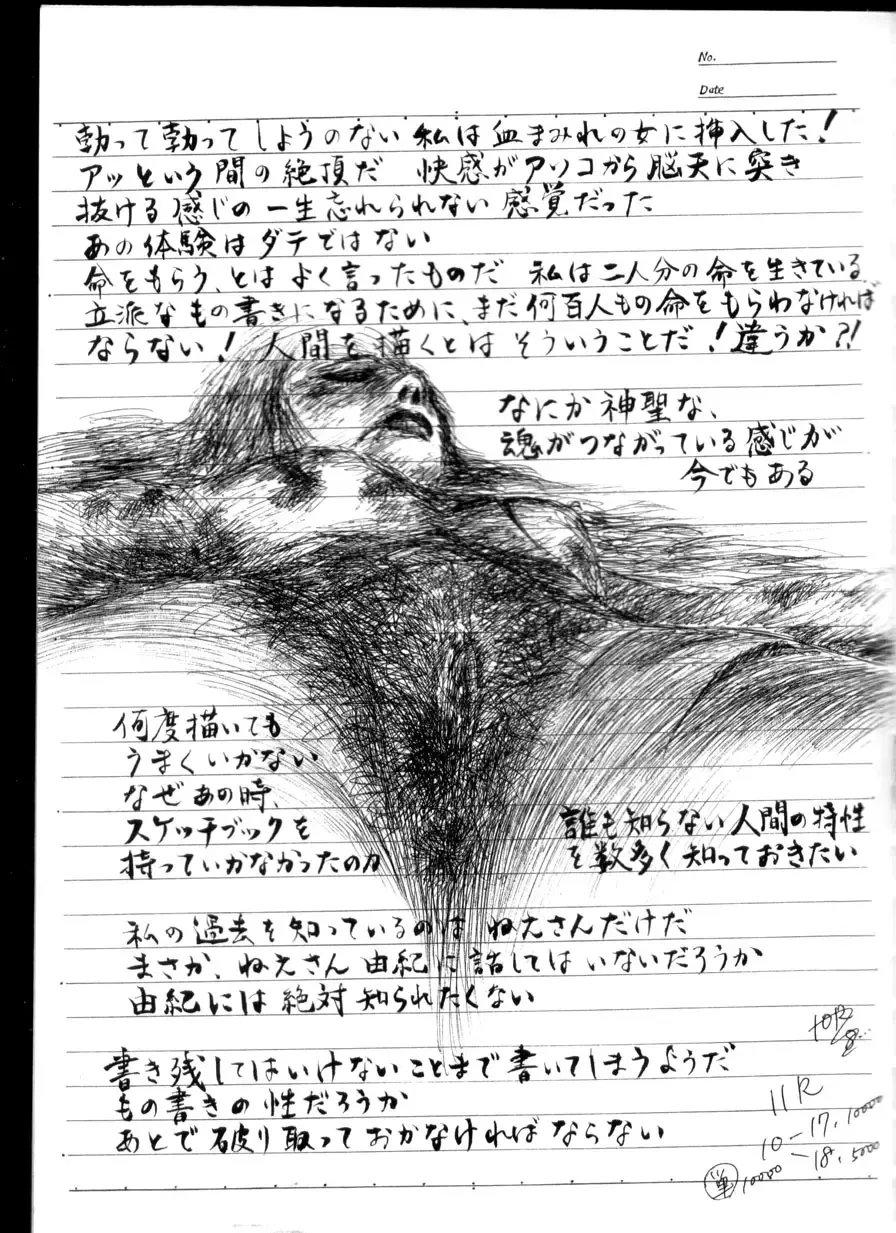 No.
Date
勃って勃ってしようのない 私は血まみれの女に挿入した!
アッという間の絶頂だ 快感がアソコから脳天に突き
抜ける感じの一生忘れられない感覚だった
あの体験はダテではない
命をもらう、とはよく言ったものだ 私は二人分の命を生きている
立派なもの書きになるために、まだ何百人もの命をもらわなければ
ならない! 人間を描くとはそういうことだ!違うか?!
なにか神聖な、
魂がつながっている感じが
今でもある
何度描いても
うまくいかない
なぜあの時、
スケッチブックを
持っていかなかったのか
誰も知らない人間の特性
を数多く知っておきたい
私の過去を知っているのは ねえさんだけだ
まさか、ねえさん 由紀に話してはいないだろうか
由紀には絶対知られたくない
書き残してはいけないことまで書いてしまうようだ
もの書きの性だろうか
あとで破り取っておかなければならない
10R
8
11R
10-17,10000
-18,5000
単 10000